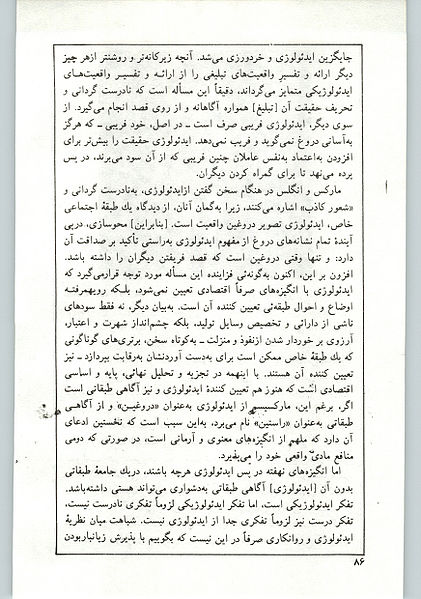 جایگزین ایدئولوژی و خردورزی می‌شد. آنچه زیرکانه‌تر و روشنتر ازهر چیز
دیگر ارائه و تفسیر واقعیت‌های تبلیغی را از ارائه و تفسیر واقعیت‌های
ایدئولوژیکی متمایز می‌گرداند، دقیقاً این مسأله است که نادرست گردانی و
تحریف حقیقت آن [تبلیغ] همواره آگاهانه و از روی قصد انجام می‌گیرد. از
سوی دیگر، ایدئولوژی فریبی صرف است ــ در اصل، خود فریبی ــ که هرگز
به‌آسانی دروغ نمی‌گوید و فریب نمی‌دهد. ایدئولوژی حقیقت را بیش‌تر برای
افزودن به‌اعتماد به‌نفس عاملان چنین فریبی که از آن سود می‌برند، در پس
پرده می‌نهد تا برای گمراه کردن دیگران.
مارکس و انگلس در هنگام سخن گفتن ازایدئولوژی، به‌نادرست گردانی و
«شعور کاذب» اشاره می‌کنند، زیرا به‌گمان آنان، از دیدگاه یك طبقهٔ اجتماعی
خاص، ایدئولوژی تصویر دروغین واقعیت است. [بنابراین] محوسازی، درپی
آیندهٔ تمام نشانه‌های دروغ از مفهوم ایدئولوژی به‌راستی تأکید بر صداقت آن
دارد: و تنها وقتی دروغین است که قصد فریفتن دیگران را داشته باشد.
افزون بر این، اکنون به‌گونه‌ئی فزاینده این مسأله مورد توجه قرارمی‌گیرد که
ایدئولوژی با انگیزه‌های صرفاً اقتصادی تعیین نمی‌شود، بلکه رویهمرفته
اوضاع و احوال طبقه‌ئی تعیین کننده آن است. به‌بیان دیگر، نه فقط سودهای
ناشی از دارائی و تخصیص وسایل تولید، بلکه چشم‌انداز شهرت و اعتبار،
آرزوی بر خوردار شدن ازنفوذ و منزلت ــ به‌کوتاه سخن، برتری‌های گوناگونی
که یك طبقهٔ خاص ممکن است برای به‌دست آوردنشان به‌رقابت بپردازد ــ نیز
تعیین کننده آن هستند. با اینهمه در تجزیه و تحلیل نهائی، پایه و اساسی
اقتصادی است که هنوز هم تعیین کنندهٔ ایدئولوژی و نیز آگاهی طبقاتی است
اگر، برغم این، مارکسیسم از ایدئولوژی به‌عنوان «دروغین» و از آگاهی
طبقاتی به‌عنوان «راستین» نام می‌برد، به‌این سبب است که نخستین ادعای
آن دارد که ملهم از انگیزه‌های معنوی و آرمانی است، در صورتی که دومی
منافع مادی واقعی خود را می‌پذیرد.
اما انگیزه‌های نهفته در پس ایدئولوژی هرچه باشند، دریك جامعهٔ طبقاتی
بدون آن [ایدئولوژی] آگاهی طبقاتی به‌دشواری می‌تواند هستی داشته‌باشد.
تفکر ایدئولوژیکی است، اما تفکر ایدئولوژیکی لزوماً تفکری نادرست نیست،
تفکر درست نیز لزوماً تفکری جدا از ایدئولوژی نیست. شباهت میان نظریهٔ
ایدئولوژی و روانکاری صرفاً در این نیست که بگوییم با پذیرش زیانباربودن
۸۶